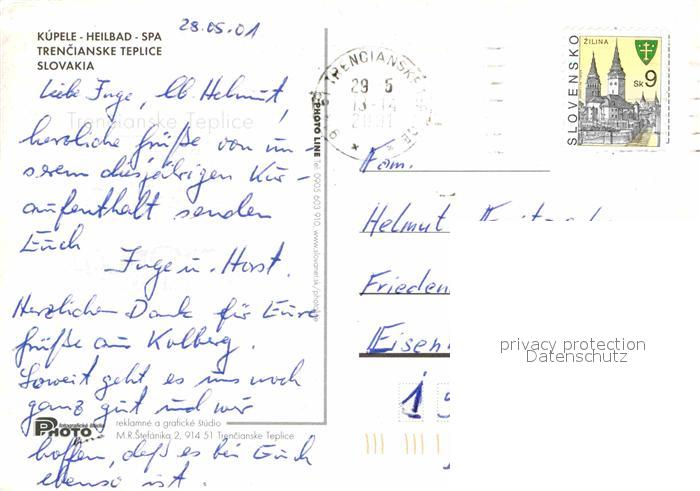 28.05.01
KÚPELE - HEILBAD - SPA
TRENČIANSKE TEPLICE
SLOVAKIA
Liebe Inge, lb. Helmut,
Trenčianske Teplice
herzliche Grüße von un-
serem diesjährigen Kur-
aufenthalt senden
Euch
Inge u. Horst.
Herzlichen Dank für Eure
Grüße aus Kolberg.
Soweit geht es uns noch
ganz gut und wir
hoffen, daß es bei Euch
ebenso ist.
fotografické štúdio
PHOTO line
reklamné a grafické štúdio
M.R.Štefánika 2, 914 51 Trenčianske Teplice
PHOTO LINE Tel. 0905 603 910, www.slovanet.sk/photoline
TRENČIANSKE
29 5
13-14
2001
SLOVENSKO
ŽILINA
Sk 9
Fam.
Helmut
Frieden
Eisen
1 5
privacy protection
Datenschutz